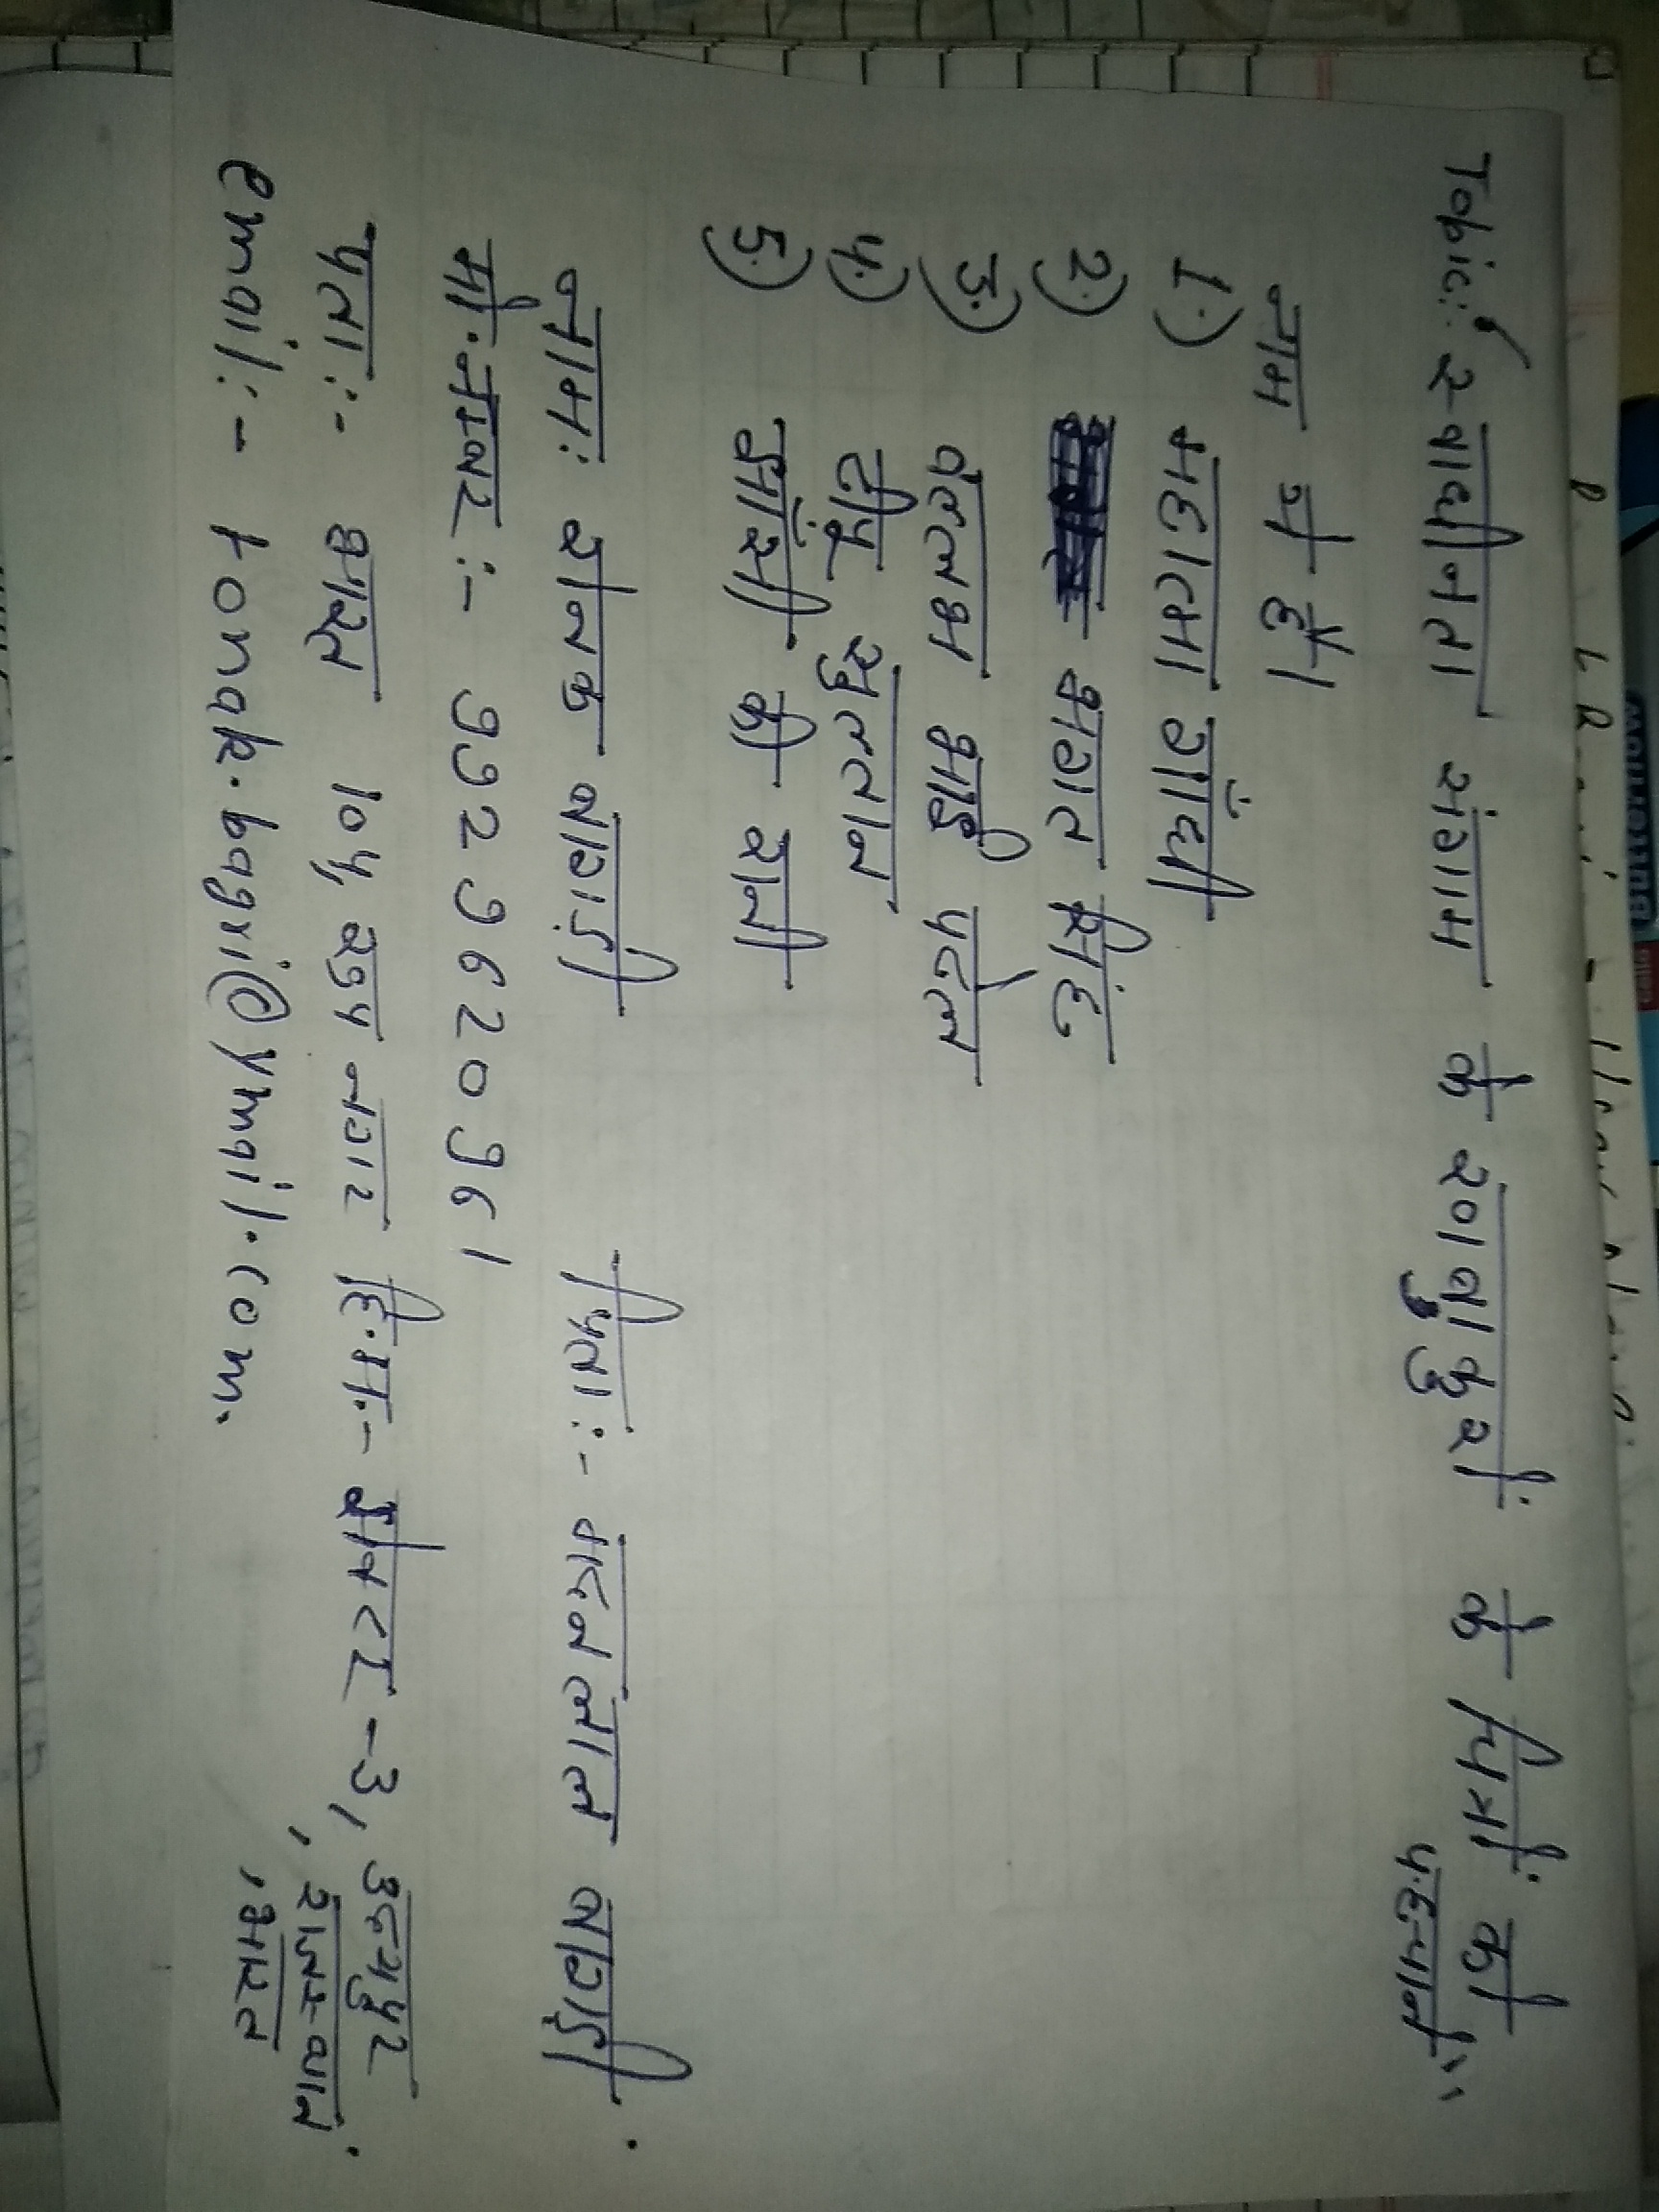 Tobic:- "स्वाधीनता संग्राम के रणबाकुरों के चित्रों को
पहचानें"
नाम ये हैं।
1.) महात्मा गाँधी
2.) भगत सिंह
3.) वल्लभ भाई पटेल
4.) टीपू सुल्तान
5.) झाँसी की रानी
नाम: रोनक बागड़ी पिता:- मदनलाल बागड़ी.
मो. नम्बर:- 9929620961
पता:- 104, नगर हि.म.- सेक्टर -3, उदयपुर
, राजस्थान.
, भारत
email:- ronak.bagri@ymail.com.